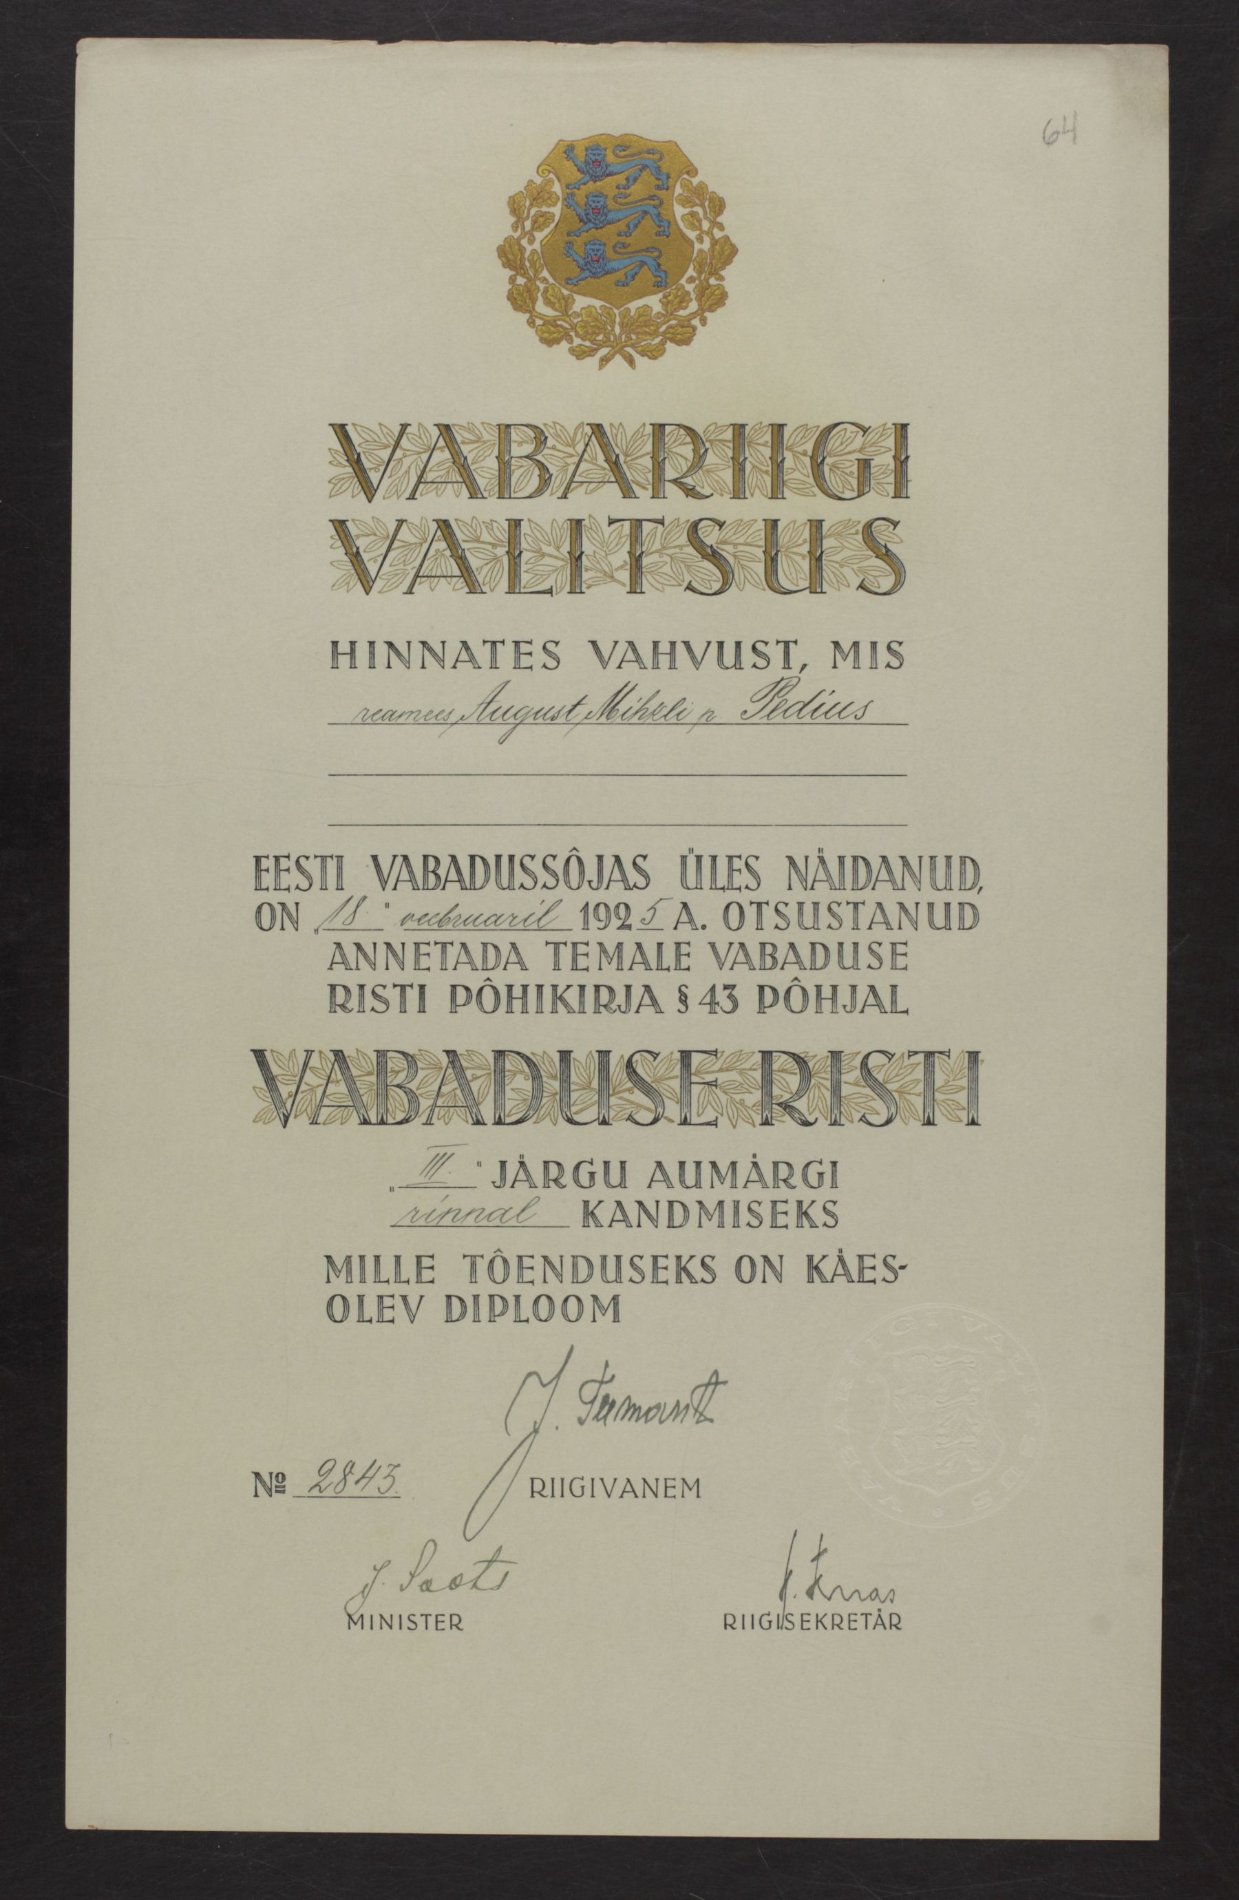 64
VABARIIGI
VALITSUS
HINNATES VAHVUST, MIS
reamees, August, Mihkli p. Pedius
EESTI VABADUSSÕJAS ÜLES NÄIDANUD,
ON „18." veebruaril 1925 A. OTSUSTANUD
ANNETADA TEMALE VABADUSE
RISTI PÕHIKIRJA § 43 PÕHJAL
VABADUSE RISTI
„III." JÄRGU AUMÄRGI
rinnal KANDMISEKS
MILLE TÕENDUSEKS ON KÄES-
OLEV DIPLOOM
J. Teemant
№ 2843.
RIIGIVANEM
VABARIIGI VALITSUS
J. Soots
MINISTER
RIIGISEKRETÄR